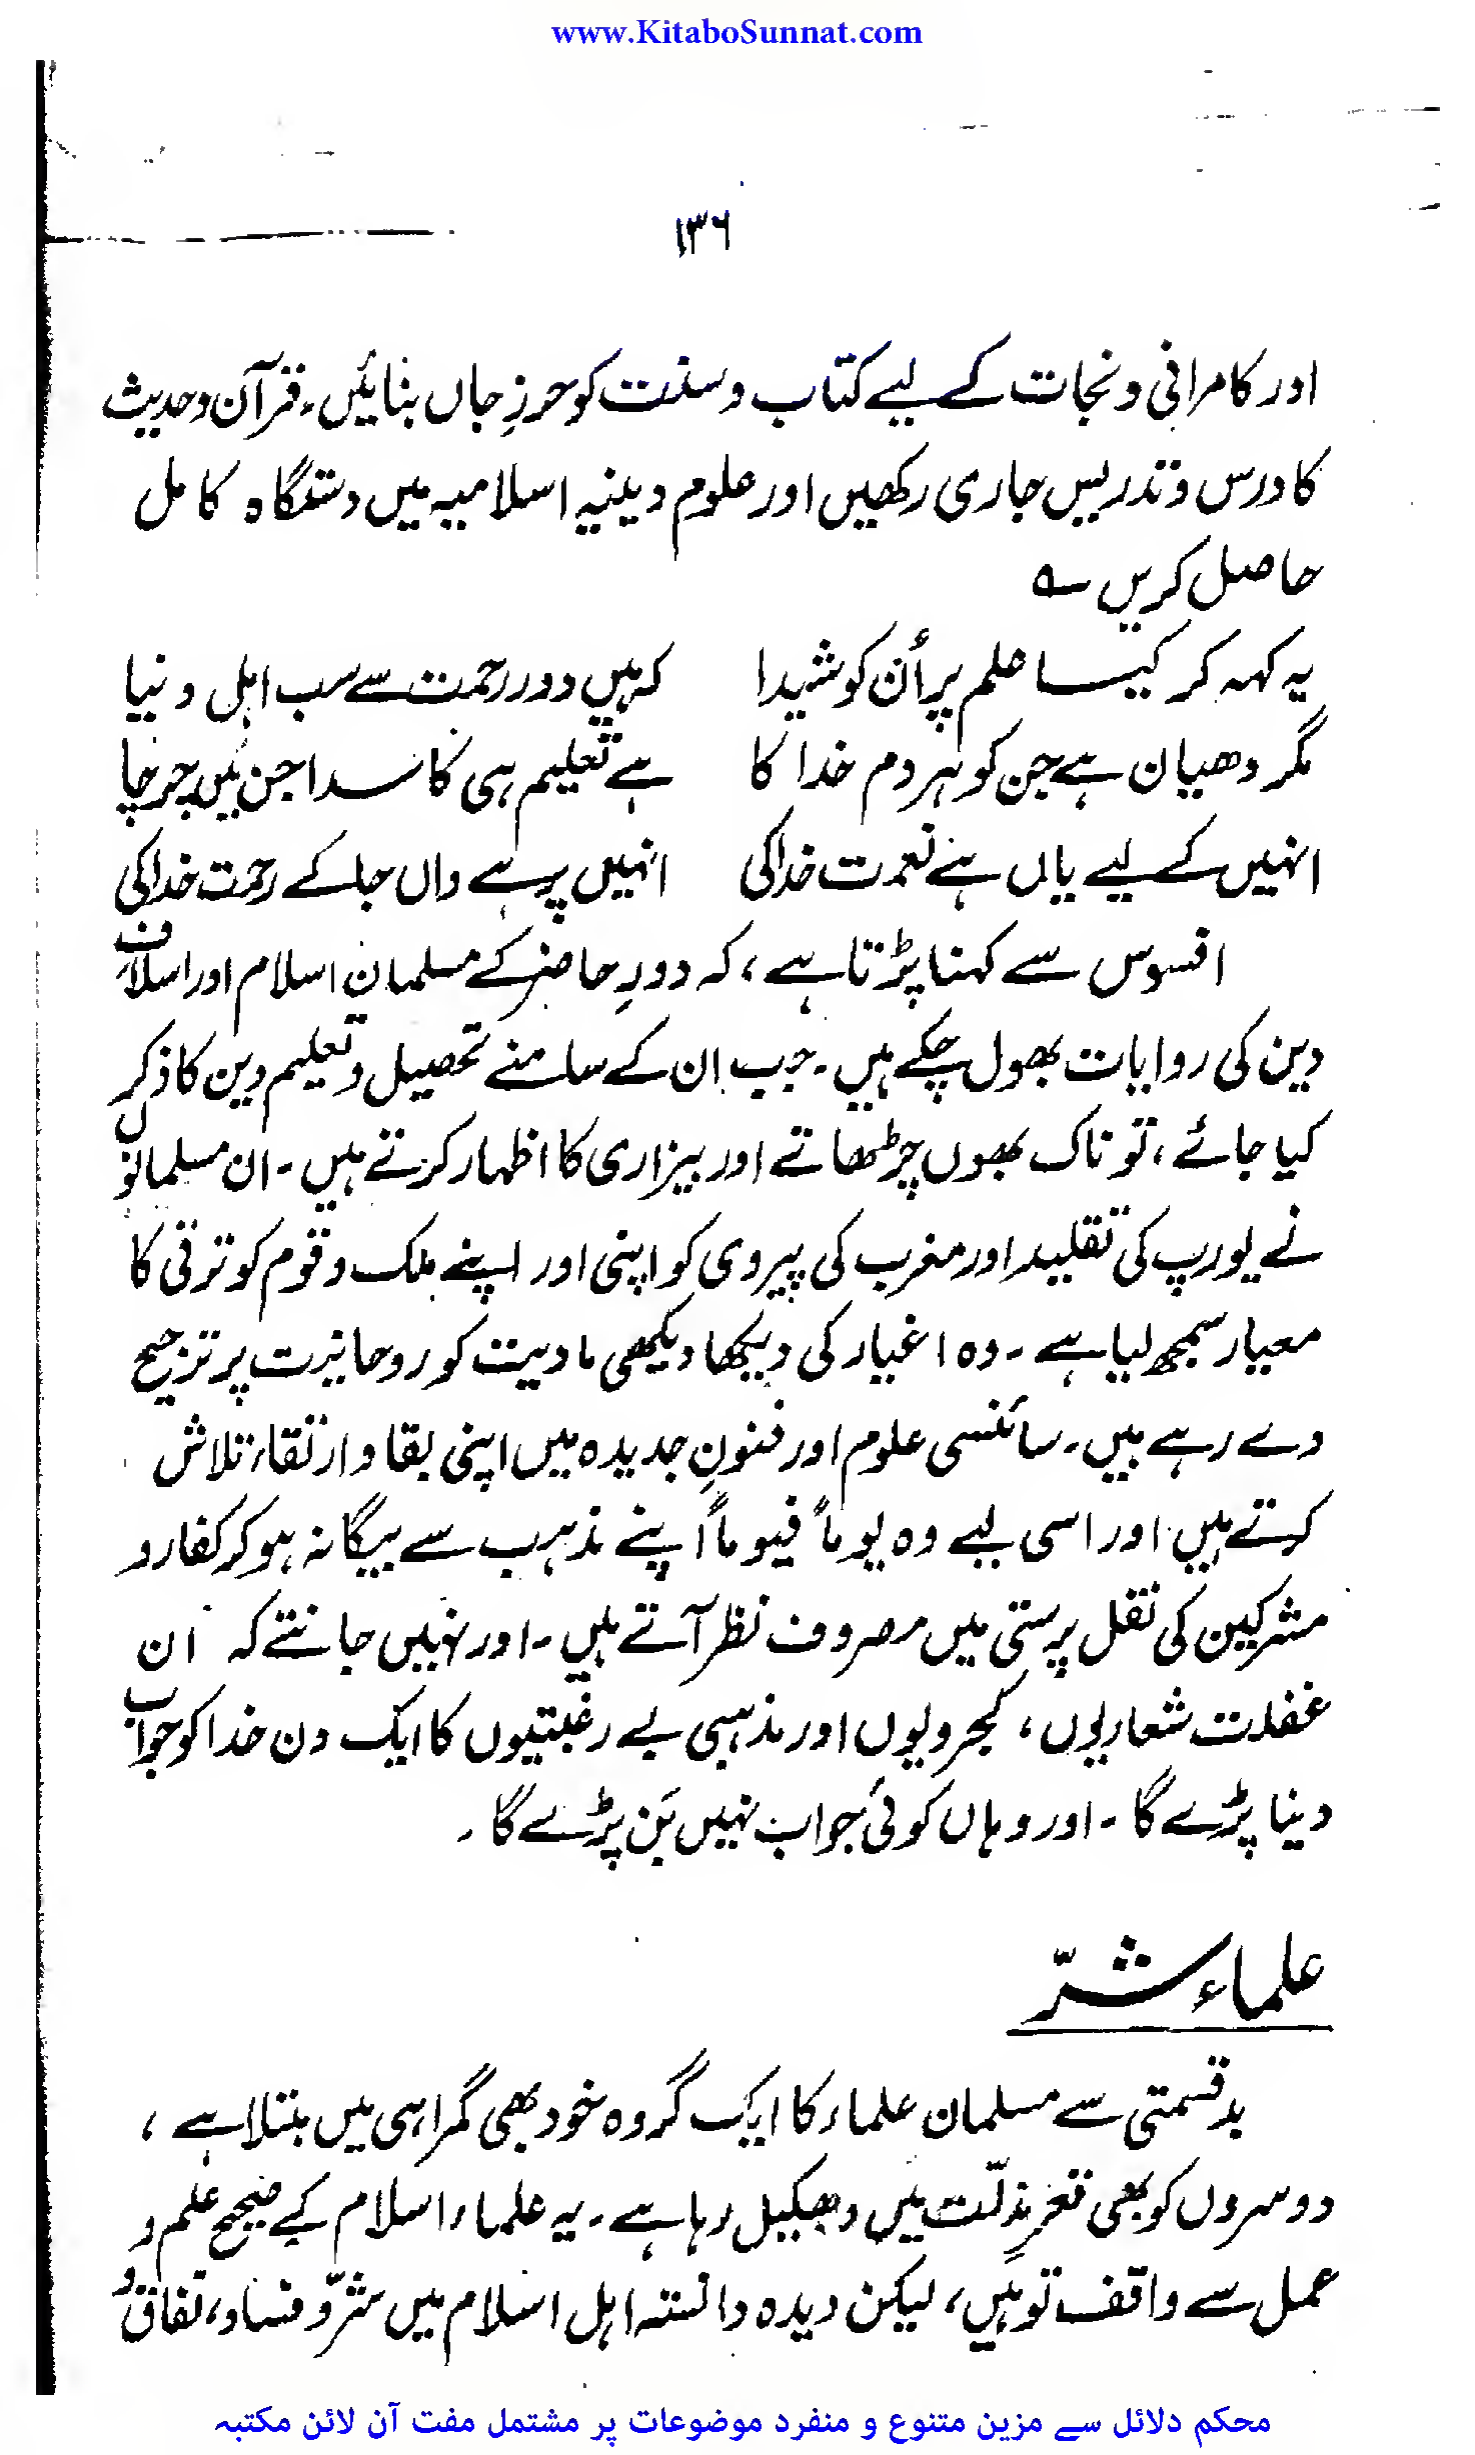 www.KitaboSunnat.com
۱۳۶
اور کامرانی و نجات کے لیے کتاب و سنت کو حرزِ جاں بنائیں۔ قرآن و حدیث
کا درس و تدریس جاری رکھیں اور علوم دینیہ اسلامیہ میں دستگاہ کامل
حاصل کریں ؎
یہ کہہ کر کیا علم پر اُن کو شیدا کہ ہیں دور رحمت سے سب اہل دنیا
مگر دھیان ہے جن کو ہر دم خدا کا ہے تعلیم ہی کا سدا جن میں چرچا
انہیں کے لیے یاں ہے نعمت خدا کی انہیں پر ہے واں جا کے رحمت خدا کی
افسوس سے کہنا پڑتا ہے، کہ دورِ حاضر کے مسلمان اسلام اور اسلاف
دین کی روایات بھول چکے ہیں۔ جب ان کے سامنے تحصیل و تعلیم دین کا ذکر
کیا جائے، تو ناک بھوں چڑھاتے اور بیزاری کا اظہار کرتے ہیں۔ ان مسلمانوں
نے یورپ کی تقلید اور مغرب کی پیروی کو اپنی اور اپنے ملک و قوم کو ترقی کا
معیار سمجھ لیا ہے۔ وہ اغیار کی دیکھا دیکھی مادیت کو روحانیت پر ترجیح
دے رہے ہیں۔ سائنسی علوم اور فنونِ جدیدہ میں اپنی بقا و ارتقاء تلاش
کرتے ہیں اور اسی لیے وہ یوماً فیوماً اپنے مذہب سے بیگانہ ہو کر کفار و
مشرکین کی نقل پرستی میں مصروف نظر آتے ہیں۔ اور نہیں جانتے کہ ان
غفلت شعاریوں، کجرویوں اور مذہبی بے رغبتیوں کا ایک دن خدا کو جواب
دینا پڑے گا۔ اور وہاں کوئی جواب نہیں بَن پڑے گا۔
علماء شرّ
بدقسمتی سے مسلمان علماء کا ایک گروہ خود بھی گمراہی میں مبتلا ہے،
دوسروں کو بھی قعرِ مذلّت میں دھکیل رہا ہے۔ یہ علماء اسلام کے صحیح علم و
عمل سے واقف تو ہیں، لیکن دیدہ دانستہ اہل اسلام میں شرّ و فساد، نفاق و
محکم دلائل سے مزین متنوع و منفرد موضوعات پر مشتمل مفت آن لائن مکتبہ